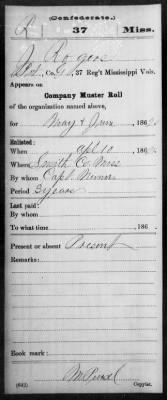 (Confederate.)
R 37 Miss.
J Rogers
Pvt, Co. G, 37 Reg't Mississippi Vols.
Appears on
Company Muster Roll
of the organization named above,
for May & June, 186
Enlisted:
When Apl 10, 186
Where Smith Co Miss
By whom Capt
Period 3 years
Last paid:
By whom
To what time , 186 .
Present or absent Present
Remarks:
Book mark:
(642) Copyist.